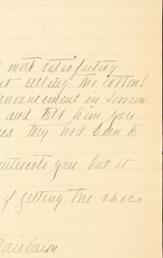 most satisfactory
t selling the cotton!
announcement in
and told him you
es they had been to
interests you but it
of getting the shoes
Fairbairn